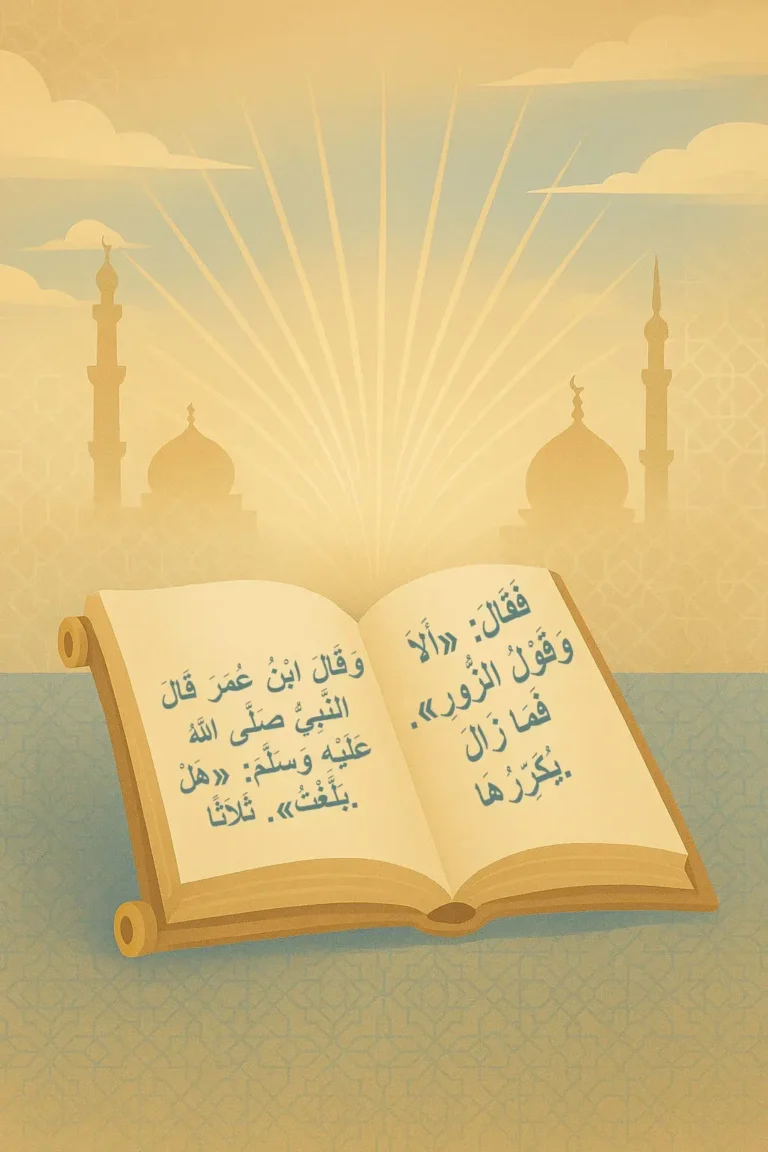 فَقَالَ: «أَلاَ
وَقَوْلُ الزُّورِ».
فَمَا زَالَ
يُكَرِّرُهَا.
وَقَالَ ابْنُ عُمَرَ قَالَ
النَّبِيُّ صَلَّى اللَّهُ
عَلَيْهِ وَسَلَّمَ: «هَلْ
بَلَّغْتُ». ثَلاَثًا.